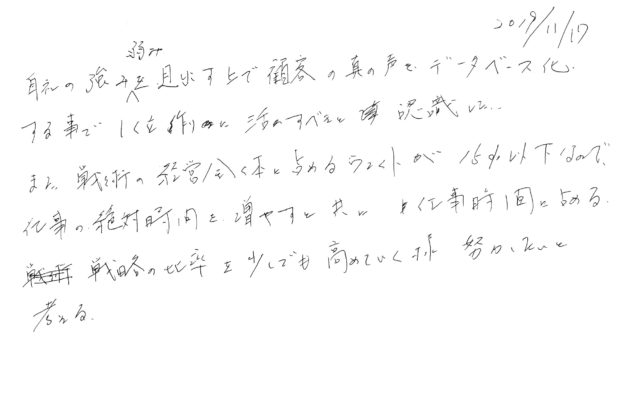 2019/11/17
弱み
自社の強みを見出す上で顧客の真の声をデータベース化
する事で1位作りに活かすべきと認識した。
また、戦術の経営全体に占めるウェイトが 以下なので、
仕事の絶対時間を増やすと共に 仕事時間に占める
戦略の比率を少しでも高めていく様 努力したいと
考える。